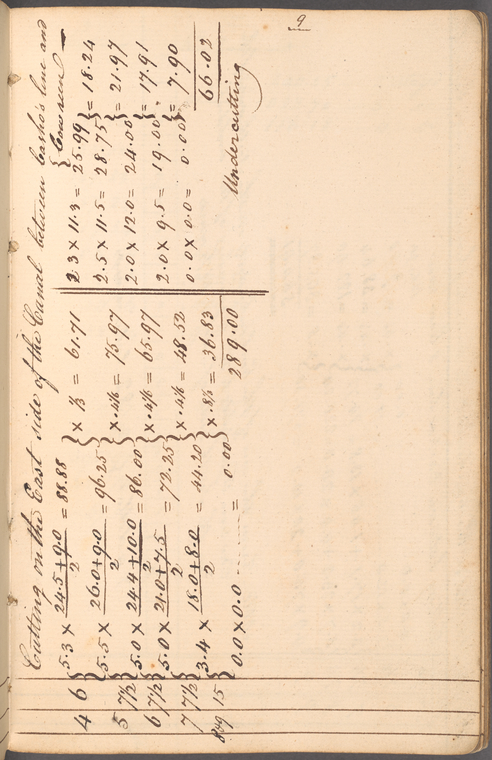 9
Cutting on the East side of the Canal between Corsho's line and
4 6 { 5.3 × 24.5+9.0/2 = 88.88 } × 1/3 = 61.71 2.3 × 11.3 = 25.99 } = 18.24
5 7½ { 5.5 × 26.0+9.0/2 = 96.25 } × .4/6 = 75.97 2.5 × 11.5 = 28.75 } = 21.97
6 7½ { 5.0 × 24.4+10.0/2 = 86.00 } × .4/6 = 65.97 2.0 × 12.0 = 24.00 } = 17.91
7 7½ { 5.0 × 21.0+7.5/2 = 72.25 } × .4/6 = 48.52 2.0 × 9.5 = 19.00 } = 7.90
8 & 9 15 { 3.4 × 18.0+8.0/2 = 44.20 } × .8/3 = 36.83 0.0 × 0.0 = 0.00 66.02
0.0 × 0.0 = 0.00 289.00 Undercutting